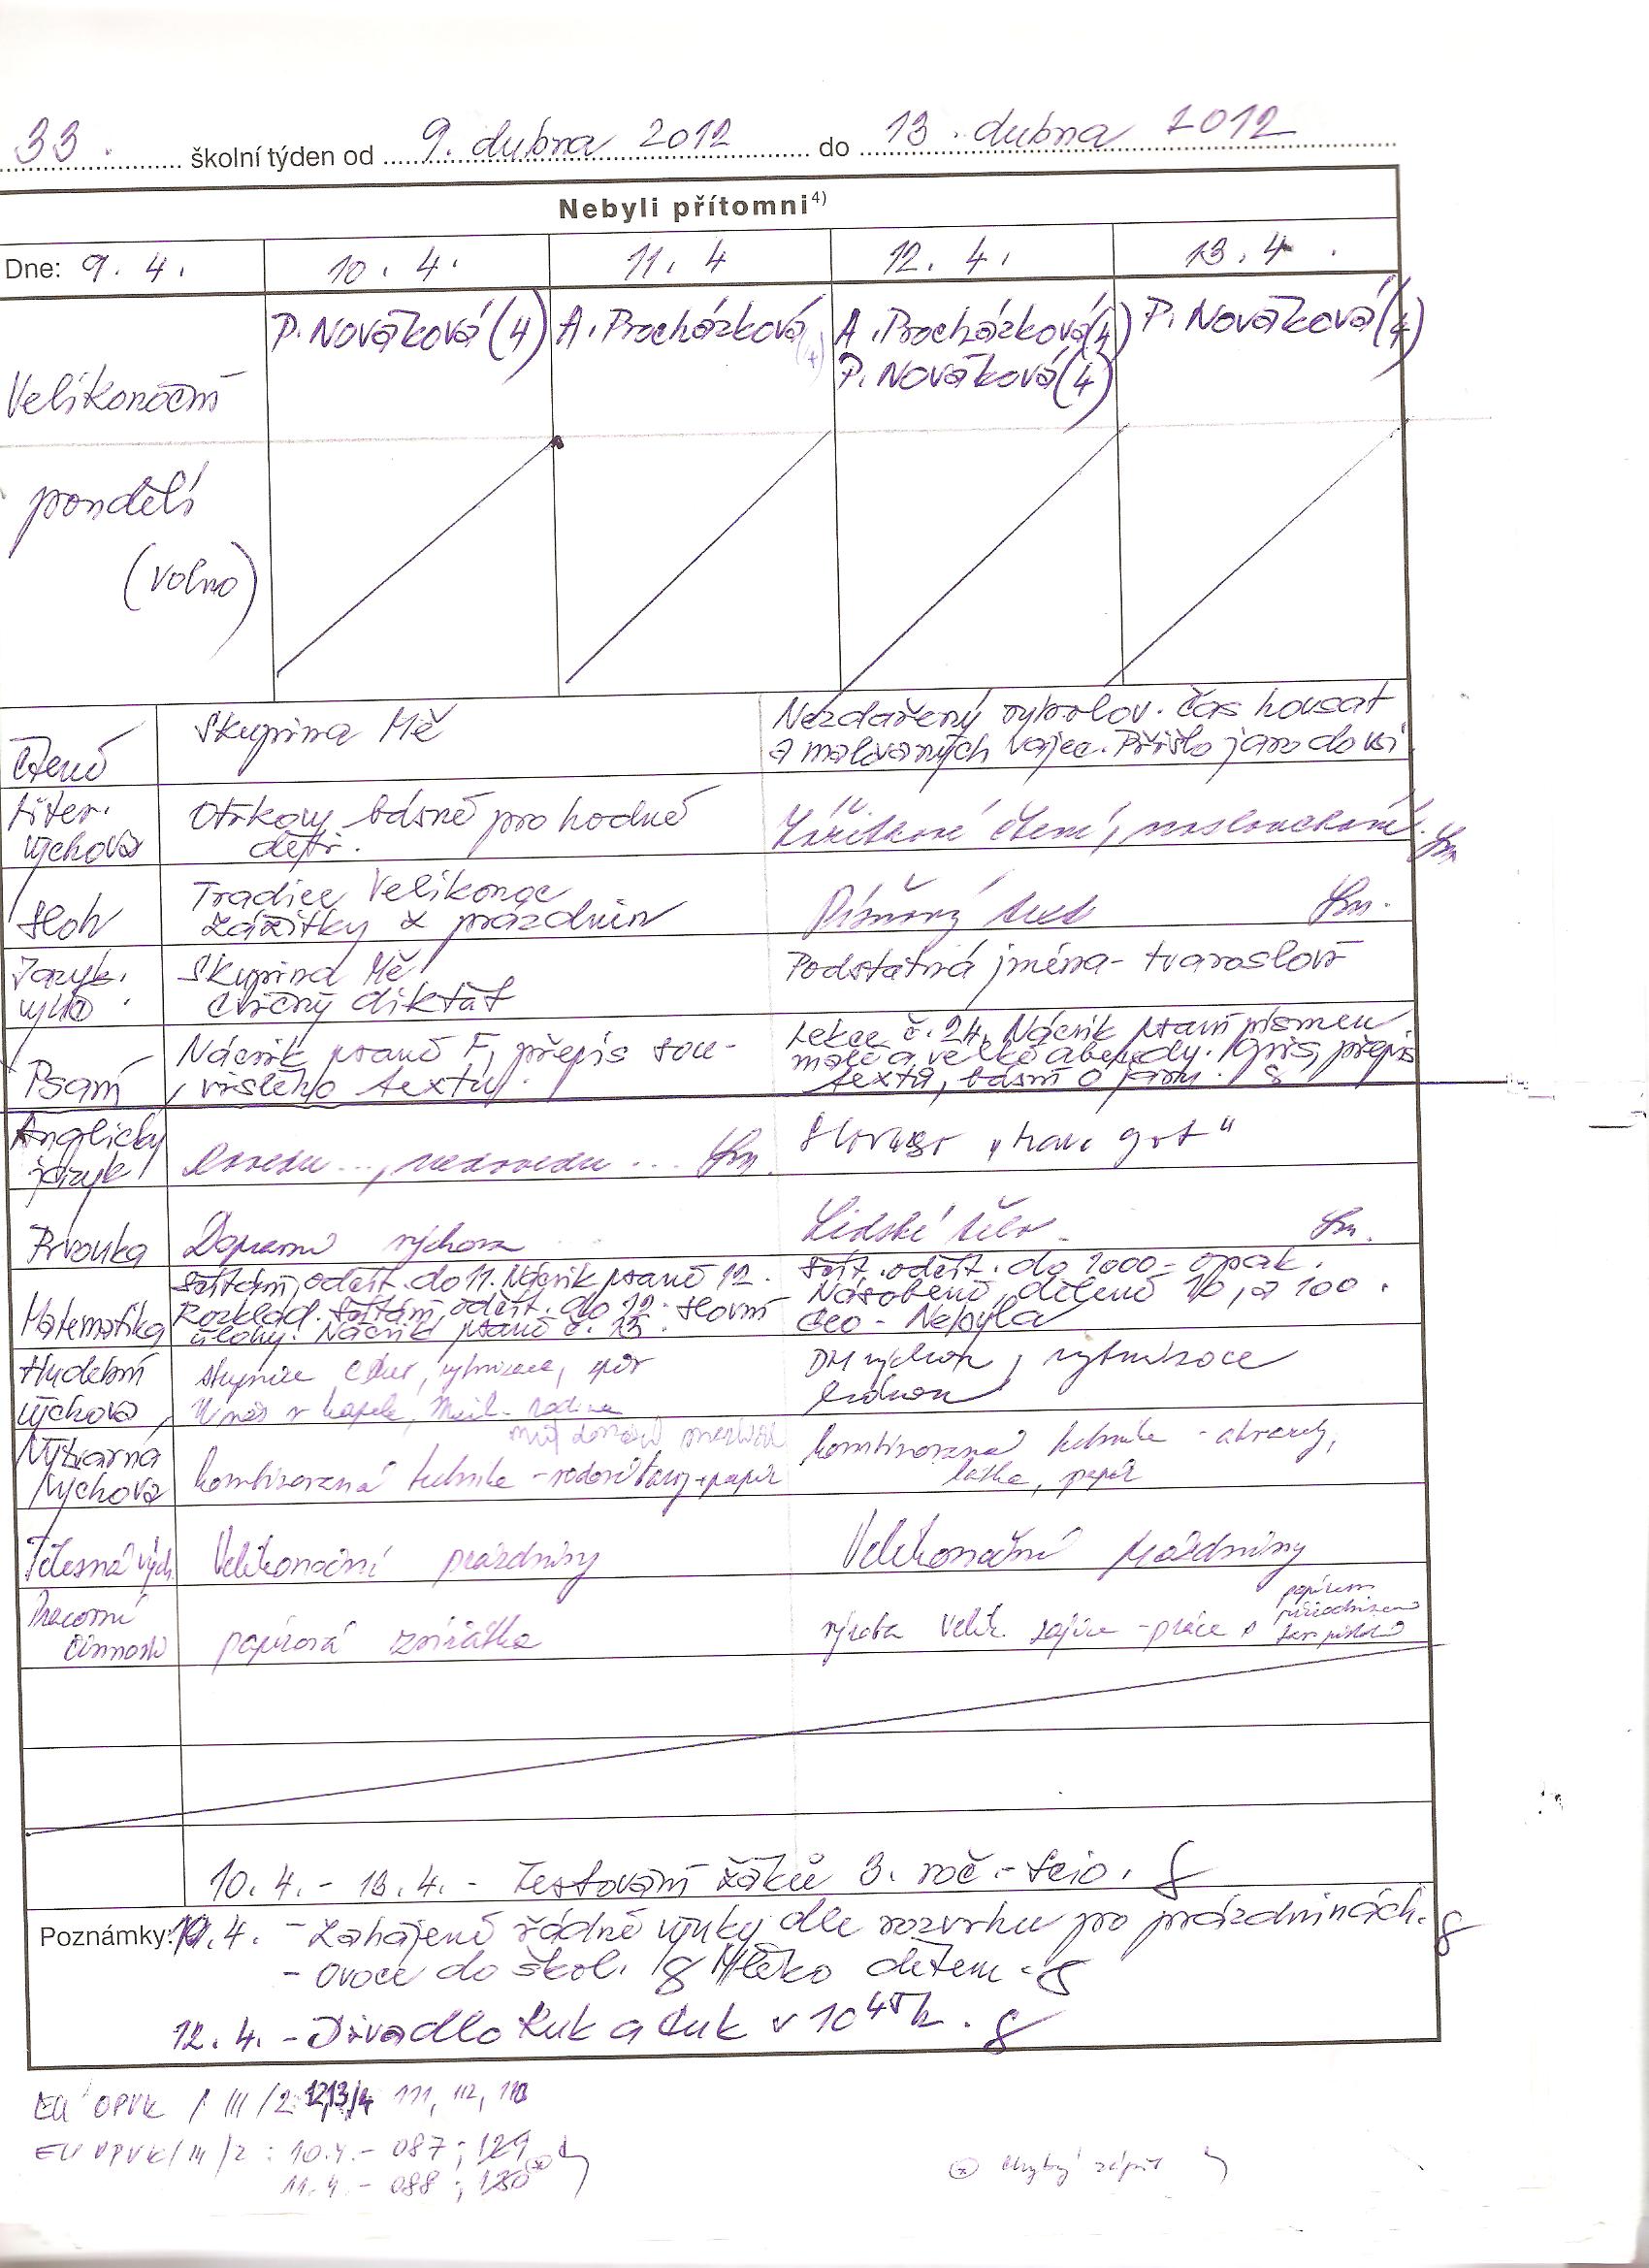 33. školní týden od 9. dubna 2012 do 13. dubna 2012
Nebyli přítomni4)
Dne: 9. 4. 10. 4. 11. 4 12. 4. 13. 4.
P. Nováková (4) A. Procházková A. Procházková (4) P. Nováková (4)
P. Nováková (4)
Velikonoční
pondělí
(volno)
Čtení Skupina Mě Nezdařený rybolov. Čas housat
a malovaných vajec. Přišlo jaro do vsi
Liter. výchova Otrkovy básně pro hodné
děti. čtení, naslouchání.
Sloh Tradice Velikonoc
zážitky z prázdnin text
Jazyk. Skupina Mě Podstatná jména - tvarosloví
Cvičný diktát
Psaní Nácvik psaní F, přepis sou-
vislého textu.
Lekce č. 24. Nácvik psaní písmen
malé a velké abecedy. Opis, přepis
textu, báseň o jaru.
Anglický jazyk Dovedu..., nedovedu... Sloveso "have got"
Prvouka Dopravní výchova Lidské tělo
Matematika Sčítání, odčít. do 11. Nácvik psaní 12.
Rozklad. Sčítání, odčít. do 12. Slovní
úlohy. Nácvik psaní č. 13.
Sčít. odčít. do 1000 - opak.
Násobení, dělení 10, a 100.
Geo - Nebyla
Hudební výchova stupnice C dur, rytmizace,
U nás v kapele,
rytmizace
Výtvarná výchova
kombinovaná technika - papír
kombinovaná technika -
látka, papír
Tělesná vých. Velikonoční prázdniny Velikonoční prázdniny
Pracovní činnosti papírová zvířátka výroba velik. zajíce - práce s papírem
10. 4. - 13. 4. - Testování žáků 3. roč. - Scio.
Poznámky: 10. 4. - Zahájení řádné výuky dle rozvrhu po prázdninách.
- Ovoce do škol. Mléko dětem.
12. 4. - Divadlo Ťuk a Ťuk v 10 45 h.
EU OPVK / III /2 12,13/4 111, 112, 113
EU OPVK / III /2 : 10.4. - 087 ; 129
11. 4. - 088 ; 130
chybný zápis